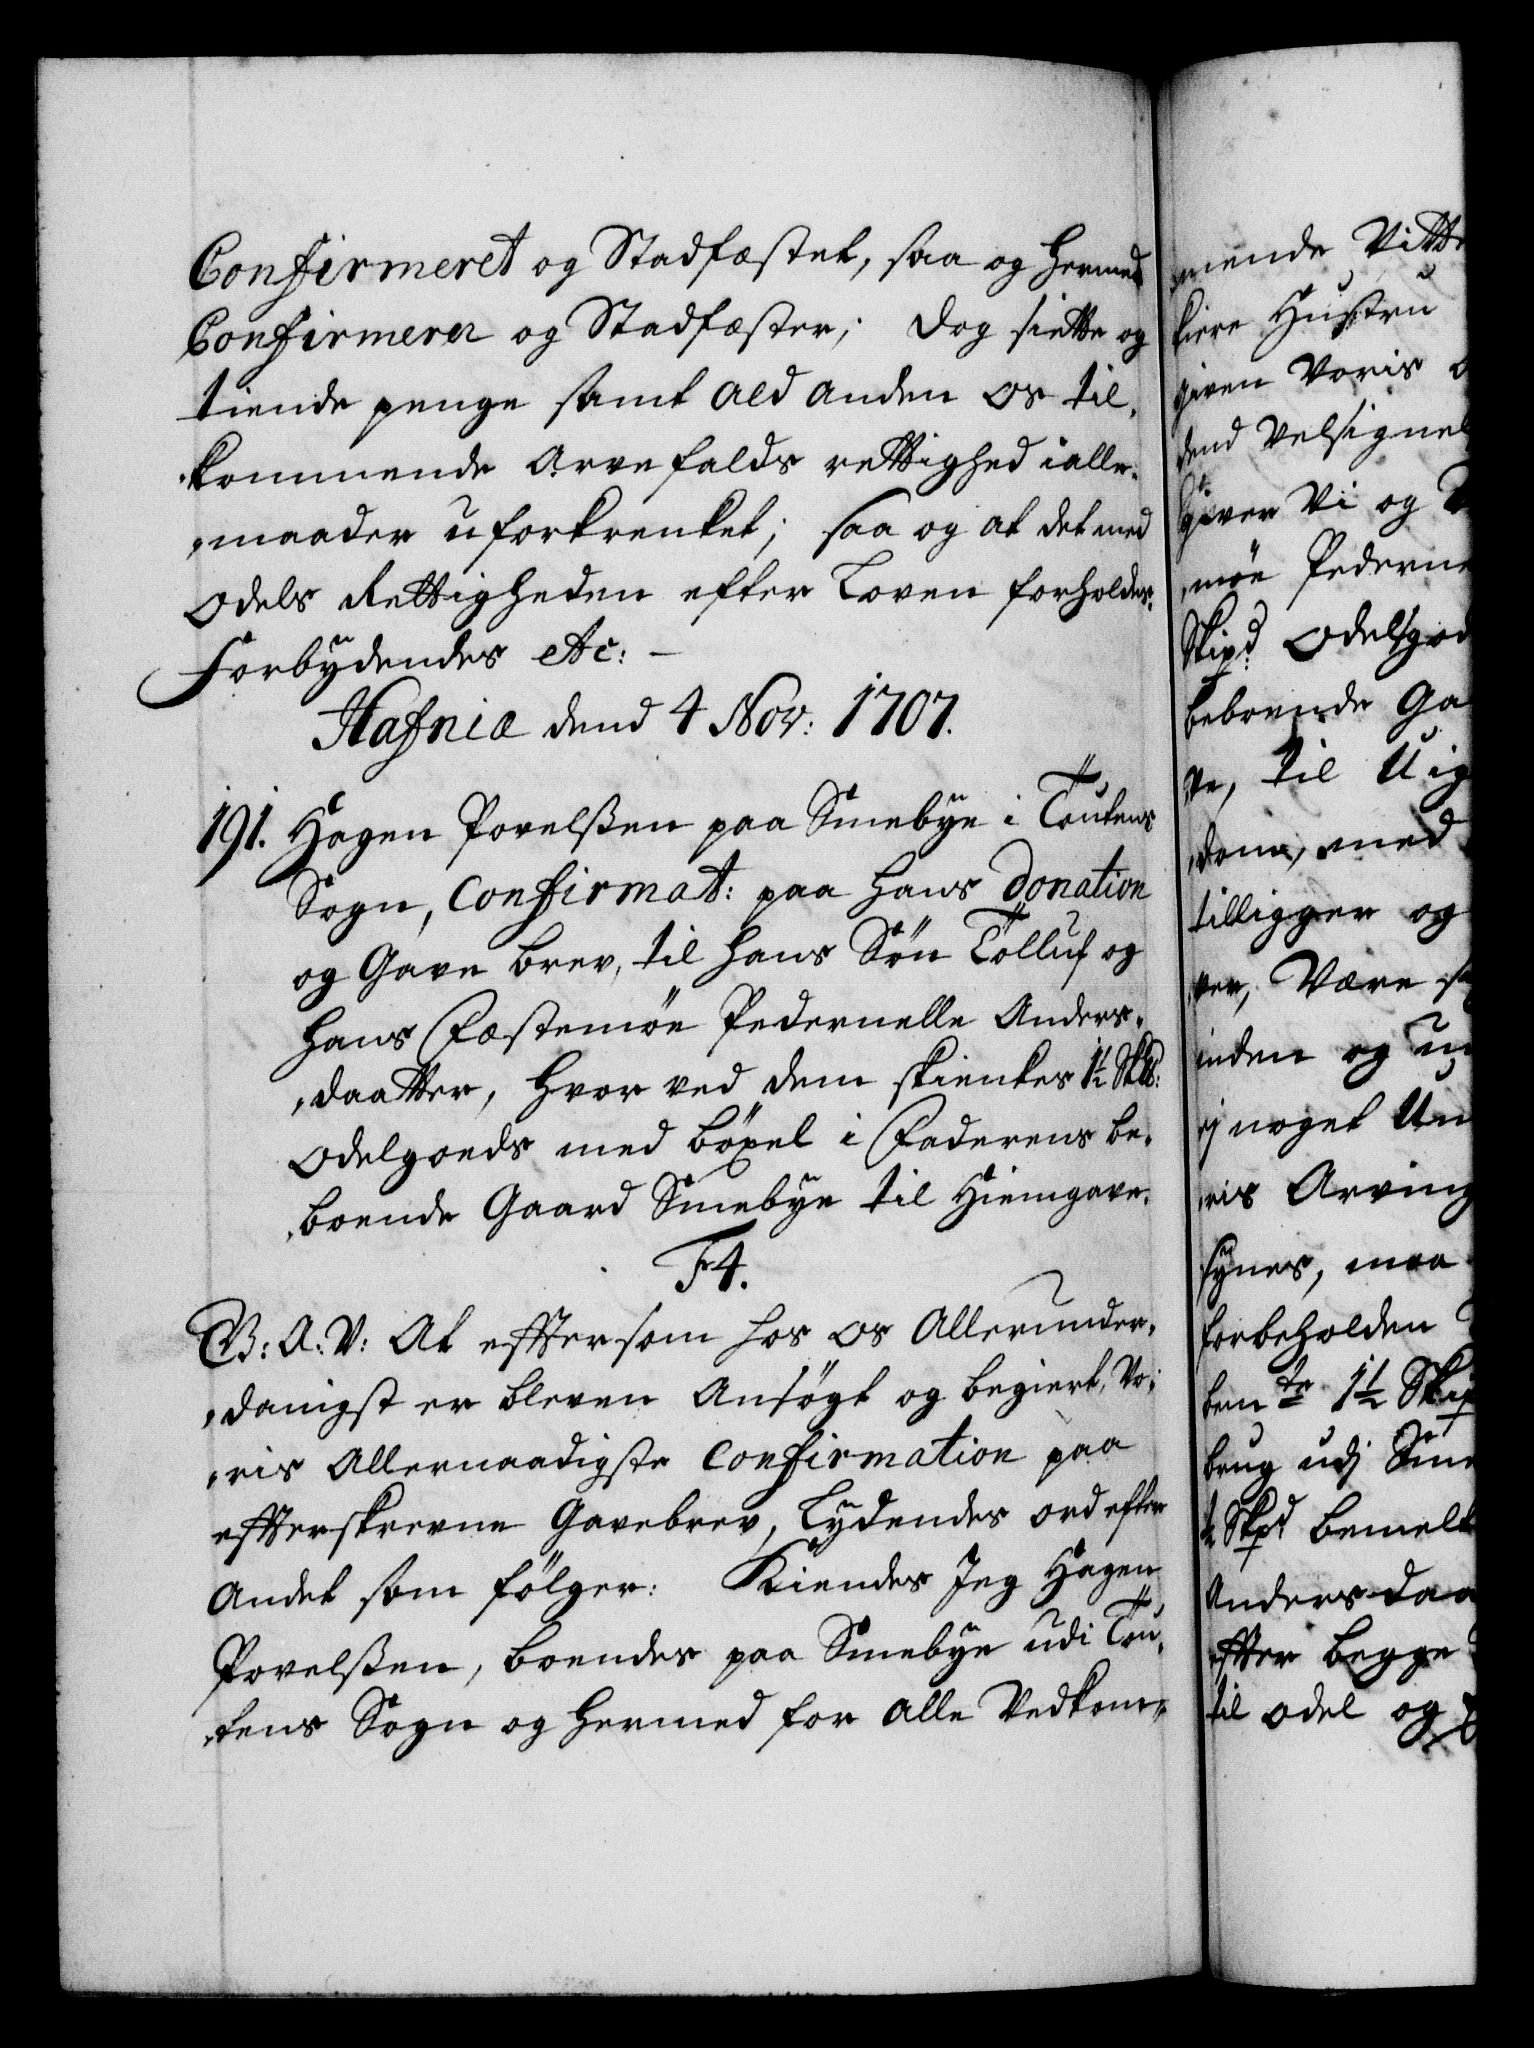 Confirmeret og Stadfæstet, saa og hermed
Confirmerer og Stadfæster; dog siette og
tiende penge samt ald anden os til,
,kommende arvefalds rettighed i alle,
,maader uforkrenket; saa og at det med
Odels Rettigheden efter Loven forholdes.
Forbydendes etc: –
Hafniæ dend 4 Nov: 1707.
191. Hagen Povelßen paa Sinebÿe i Toutens
Sogn, Confirmat: paa hans Donation
og Gave brev, til hans Sön Tolluf og
hans Fæstemöe Pedernelle Anders,
,daatter, hvor ved dem skienkes 1½ Sk℔:
Odelgoeds med böxel i Faderens be,
,boende Gaard Sinebÿe til Hiemgave.
F4.
G: A: V: At efftersom hos os Allerunder,
,danigst er bleven Ansögt og begiert, Vo,
,ris Allernaadigste Confirmation paa
effterskrevne Gavebrev, Lÿdendes ord efter
Andet som fölger: Kiendes Jeg Hagen
Povelßen, boendes paa Sinebÿe udi Tou,
,tens Sogn og hermed for alle Vedkom,,
,mende Vitte
kiere Hustru
given Voris
dend Velsignel
giver Vi og
,möe Pederne
Skipd Odelsgod
beboende Ga
ve, til U ig
,dom, med
tilligger og
ver, Være
inden og u
ej noget Un
,ris Arving
sÿnes, maa
forbeholden
ben te 1½ Skip
brug udj Sine
½ Skpd bemelt
Andersdaa
effter begge
til odel og